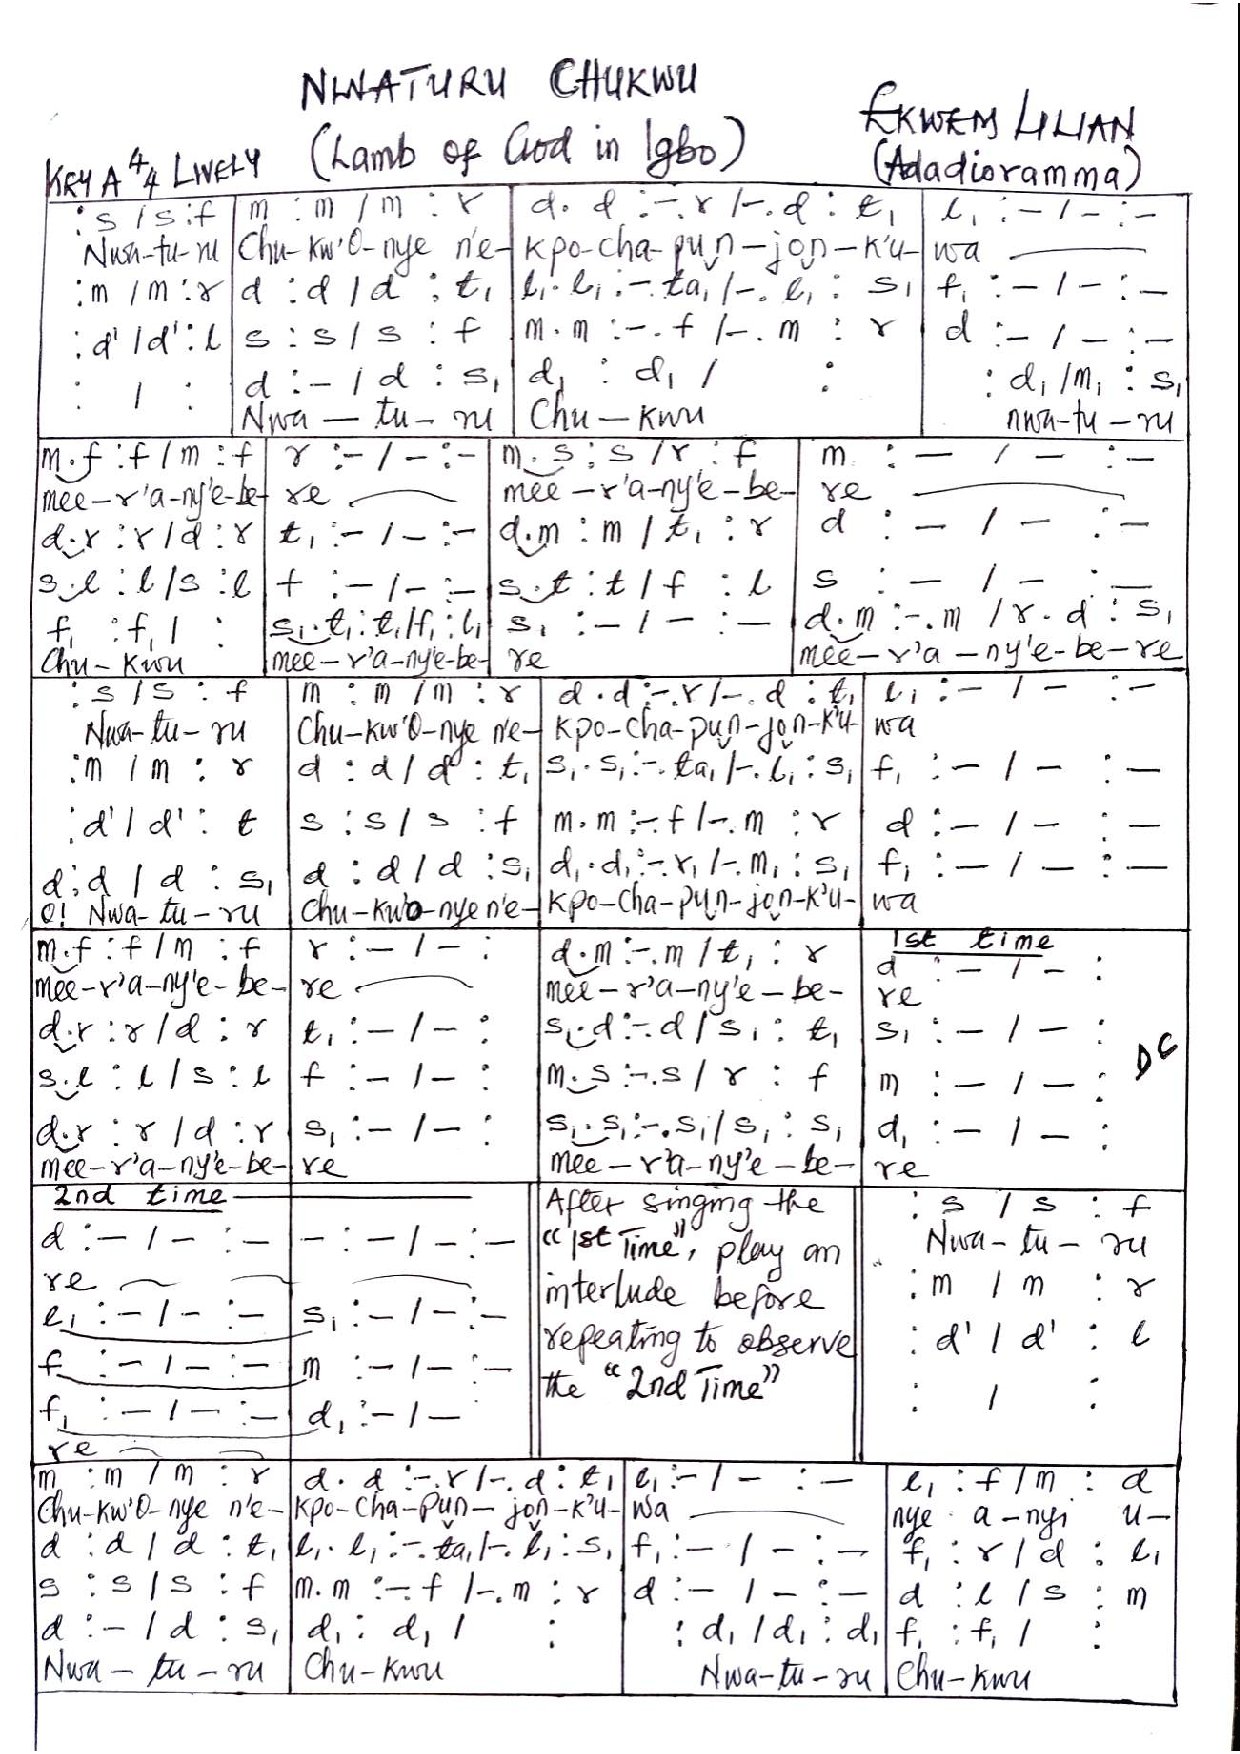 NWATURU CHUKWU
(Lamb of God in Igbo)
EKWEM LILIAN
(Adadioramma)
KEY A 4/4 LIVELY
:s / s :f | m : m / m : r | d. d :-. r /-. d : t₁ | l₁ : - / - : -
Nwa-tu-ru | Chu-kw'O-nye n'e- | kpo-cha-pụn-jọn-k'u- | wa
:m / m :r | d : d / d : t₁ | l₁. l₁ :-. ta₁ /-. l₁ : s₁ | f₁ : - / - : -
:d' / d' : l | s : s / s : f | m. m :-. f /-. m : r | d : - / - : -
: / : | d : - / d : s₁ | d₁ : d₁ / : | : d₁ / m₁ : s₁
Nwa-tu-ru | Chu-kwu | nwa-tu-ru
m.f : f / m : f | r : - / - : - | m. s : s / r : f | m : - / - : -
mee-r'a-ny'e-be- | re | mee-r'a-ny'e-be- | re
d.r : r / d : r | t₁ : - / - : - | d.m : m / t₁ : r | d : - / - : -
s.l : l / s : l | f : - / - : - | s.t : t / f : l | s : - / - : -
f₁ : f₁ / : | s₁.t₁ : t₁ / f₁ : l₁ | s₁ : - / - : - | d.m :-. m / r. d : s₁
Chu-kwu | mee-r'a-ny'e-be- | re | mee-r'a-ny'e-be-re
:s / s : f | m : m / m : r | d. d :-. r /-. d : t₁ | l₁ : - / - : -
Nwa-tu-ru | Chu-kw'O-nye n'e- | kpo-cha-pụn-jọn-k'u- | wa
:m / m : r | d : d / d : t₁ | s₁. s₁ :-. ta₁ /-. l₁ : s₁ | f₁ : - / - : -
:d' / d' : t | s : s / s : f | m. m :-. f /-. m : r | d : - / - : -
d : d / d : s₁ | d : d / d : s₁ | d₁. d₁ :-. r₁ /-. m₁ : s₁ | f₁ : - / - : -
O! Nwa-tu-ru | Chu-kw'o-nye n'e- | kpo-cha-pụn-jọn-k'u- | wa
1st time
m.f : f / m : f | r : - / - : | d.m :-. m / t₁ : r | d : - / - :
mee-r'a-ny'e-be- | re | mee-r'a-ny'e-be- | re
d.r : r / d : r | t₁ : - / - : | s₁.d :-. d / s₁ : t₁ | s₁ : - / - :
DC
s.l : l / s : l | f : - / - : | m.s :-. s / r : f | m : - / - :
d.r : r / d : r | s₁ : - / - : | s₁.s₁ :-. s₁ / s₁ : s₁ | d₁ : - / - :
mee-r'a-ny'e-be- | re | mee-r'a-ny'e-be- | re
2nd time
d : - / - : - | - : - / - : -
re
l₁ : - / - : - | s₁ : - / - : -
f : - / - : - | m : - / - : -
f₁ : - / - : - | d₁ : - / -
re
After singing the
"1st Time", play an
interlude before
repeating to observe
the "2nd Time"
: s / s : f
Nwa-tu-ru
: m / m : r
: d' / d' : l
: / :
m : m / m : r | d. d :-. r /-. d : t₁ | l₁ : - / - : - | l₁ : f / m : d
Chu-kw'O-nye n'e- | kpo-cha-pụn-jọn-k'u- | wa | nye a-nyi u-
d : d / d : t₁ | l₁. l₁ :-. ta₁ /-. l₁ : s₁ | f₁ : - / - : - | f₁ : r / d : l₁
s : s / s : f | m. m :-. f /-. m : r | d : - / - : - | d : l / s : m
d : - / d : s₁ | d₁ : d₁ / : | : d₁ / d₁ : d₁ | f₁ : f₁ / :
Nwa-tu-ru | Chu-kwu | Nwa-tu-ru | Chu-kwu